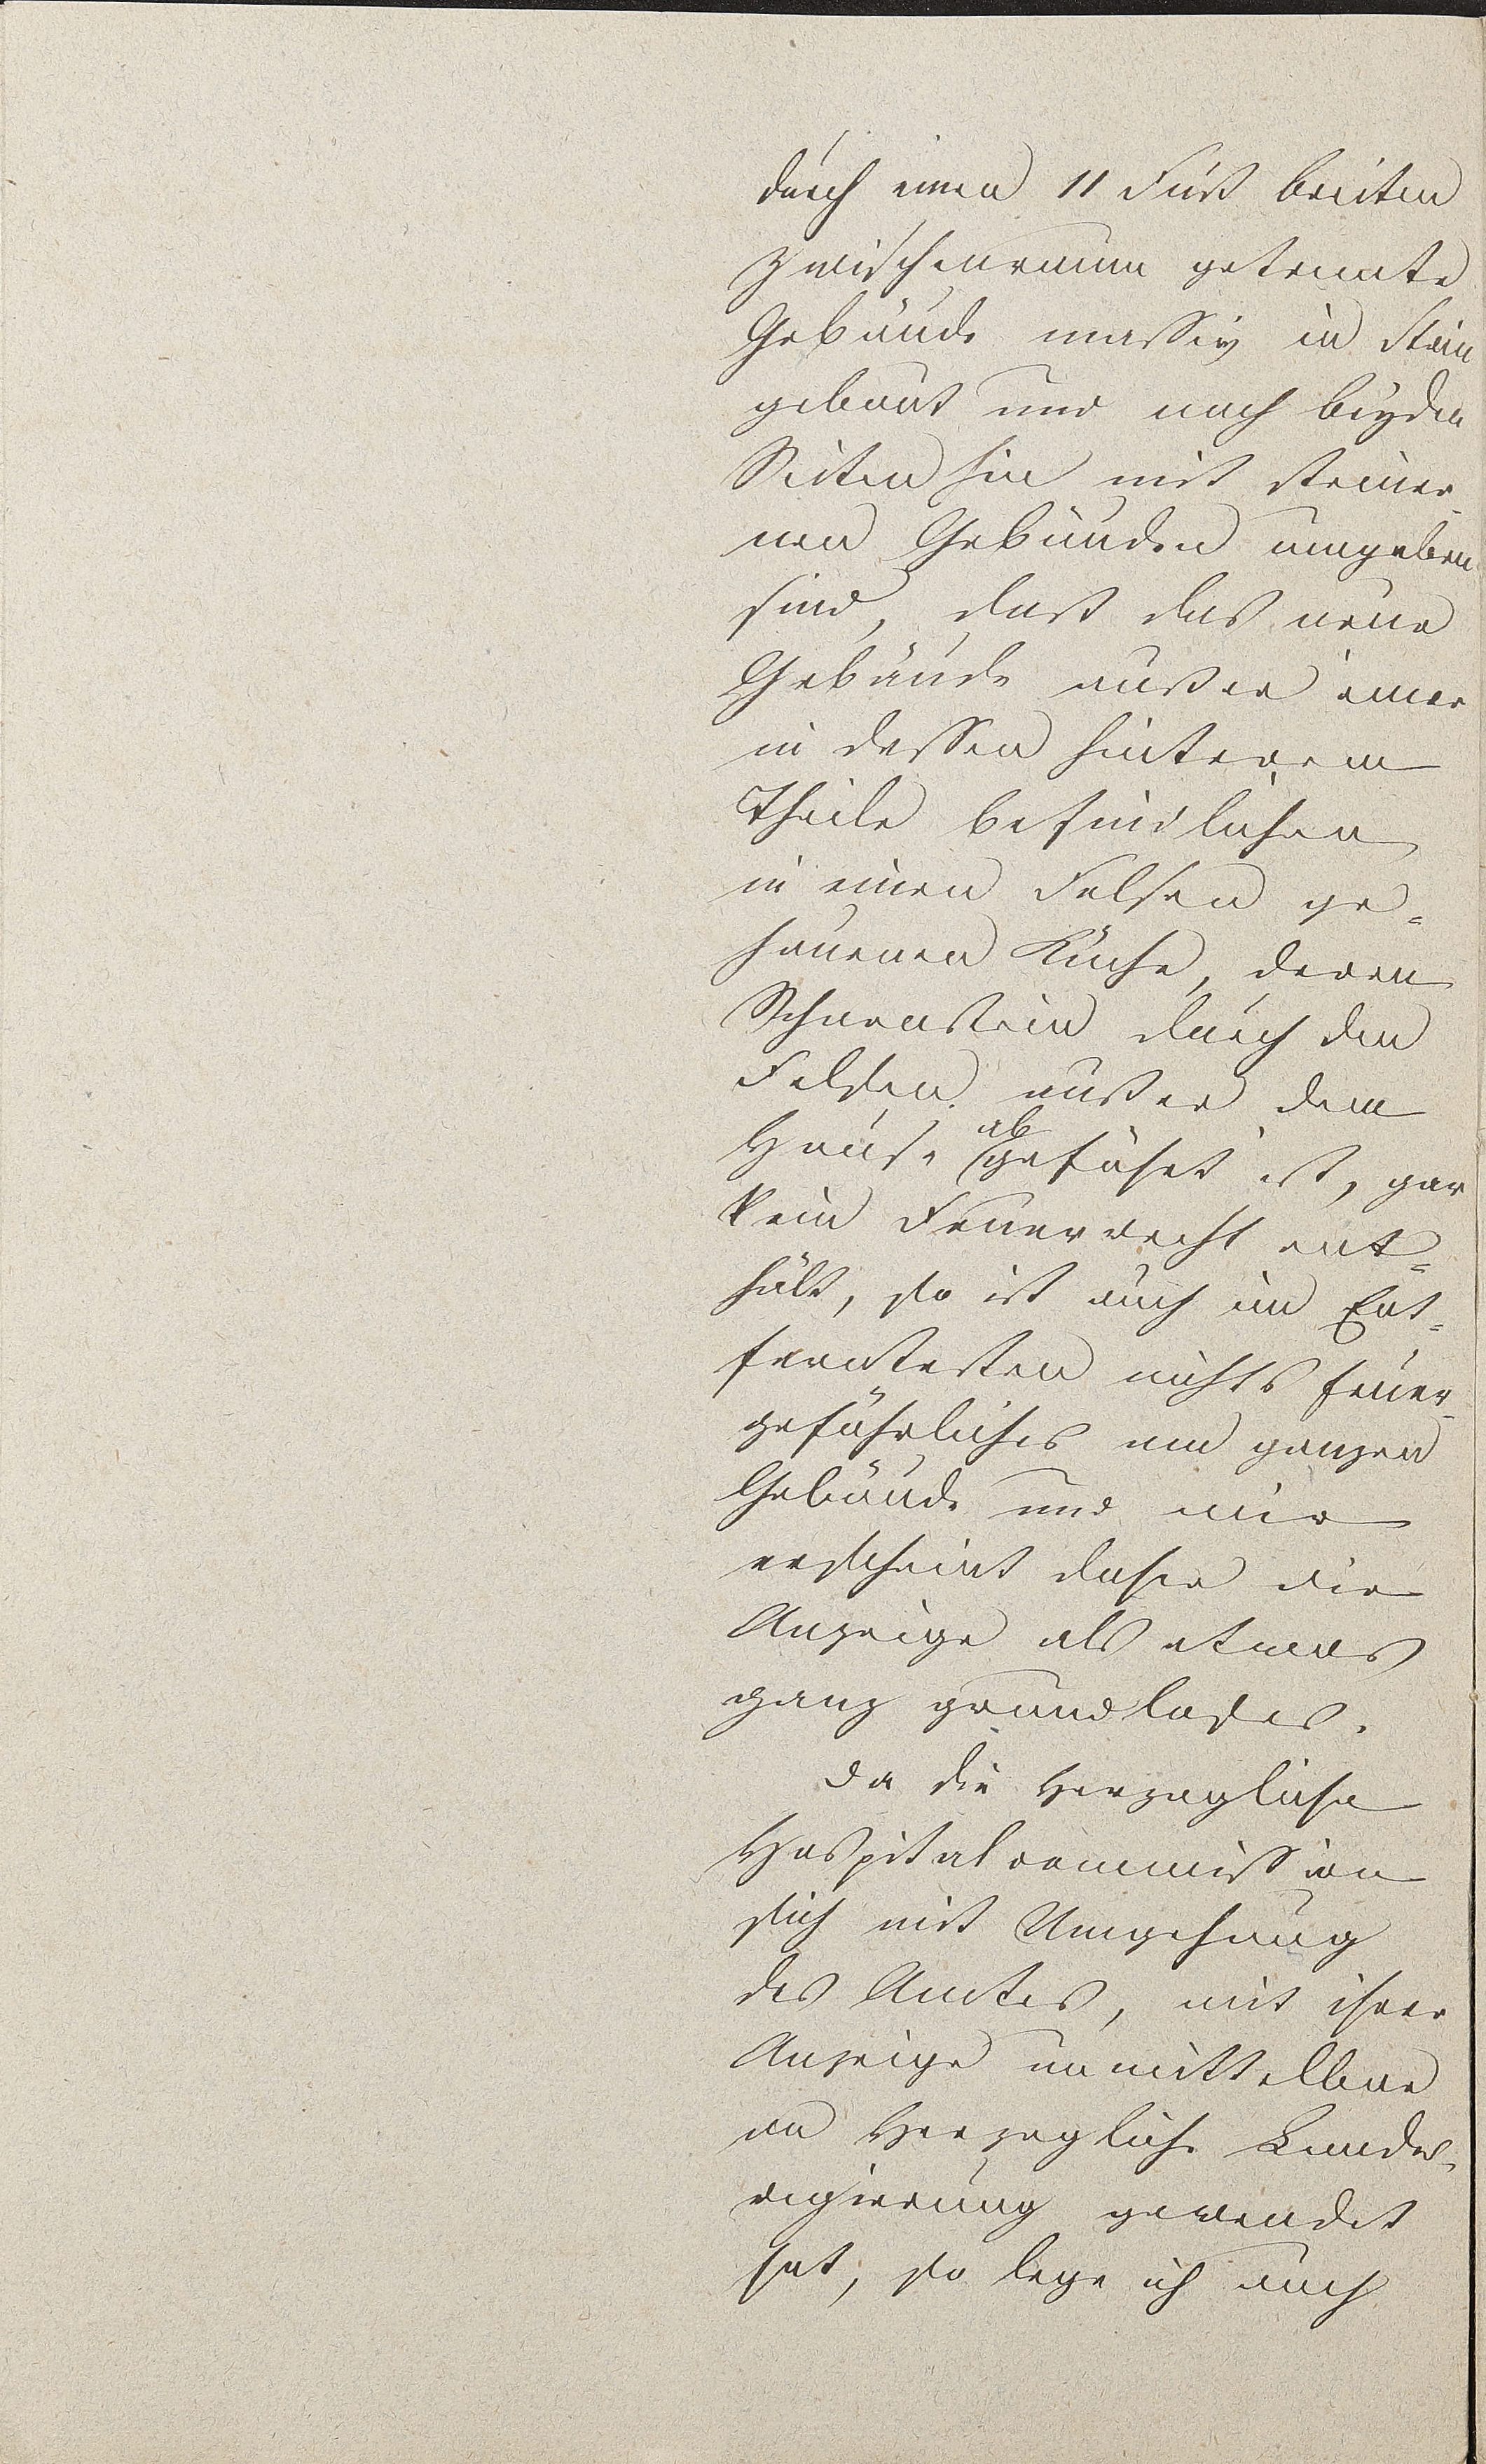 durch einen 11 Fuß breiten
Zwischenraum getrennte
Gebäude massiv in Stein
gebaut und nach beyden
Seiten hin mit steiner-
nen Gebäuden umgeben
sind, daß das neue
Gebäude außer einer
in dessen hinterem
Theile befindlichen
in einen Felsen ge=
hauenen Küche, deren
Schornstein durch den
Felsen außer dem
Hause abgeführt ist, gar
kein Feuerrecht ent=
hält, so ist auch im Ent=
ferntesten nichts feuer-
gefährliches am ganzen
Gebäude und mir
erscheint daher die
Anzeige als etwas
ganz grundloses.
Da die Herzogliche
Hospitalcommission
sich mit Umgehung
des Amtes, mit ihrer
Anzeige unmittelbar
an Herzogliche Landes-
regierung gewendet
hat, so lege ich auch